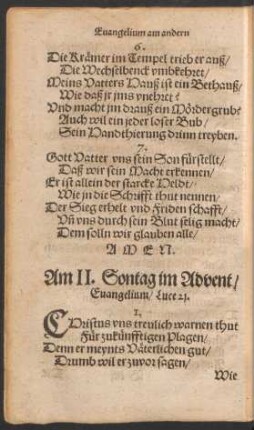 Euangelium am andern
6.
Die Krämer im Tempel trieb er auß/
Die Wechselbenck vmbkehret/
Meins Vatters Hauß ist ein Bethauß/
Wie daß jr jms vnehret?
Vnd macht jm drauß ein Mördergrub?
Auch wil ein jeder loser Bub/
Sein Handthierung drinn treyben.
7.
Gott Vatter vns sein Son fürstellt/
Daß wir sein Macht erkennen/
Er ist allein der starcke Heldt/
Wie jn die Schrifft thut nennen/
Der Sieg erhelt vnd Friden schafft/
Vñ vns durch sein Blut selig macht/
Dem solln wir glauben alle/
AMEN.
Am II. Sontag im Advent/
Euangelium/ Luce 21.
1.
CHristus vns treulich warnen thut
Für zukünfftigen Plagen/
Denn er meynts Väterlichen gut/
Drumb wil er zuvor sagen/
Wie